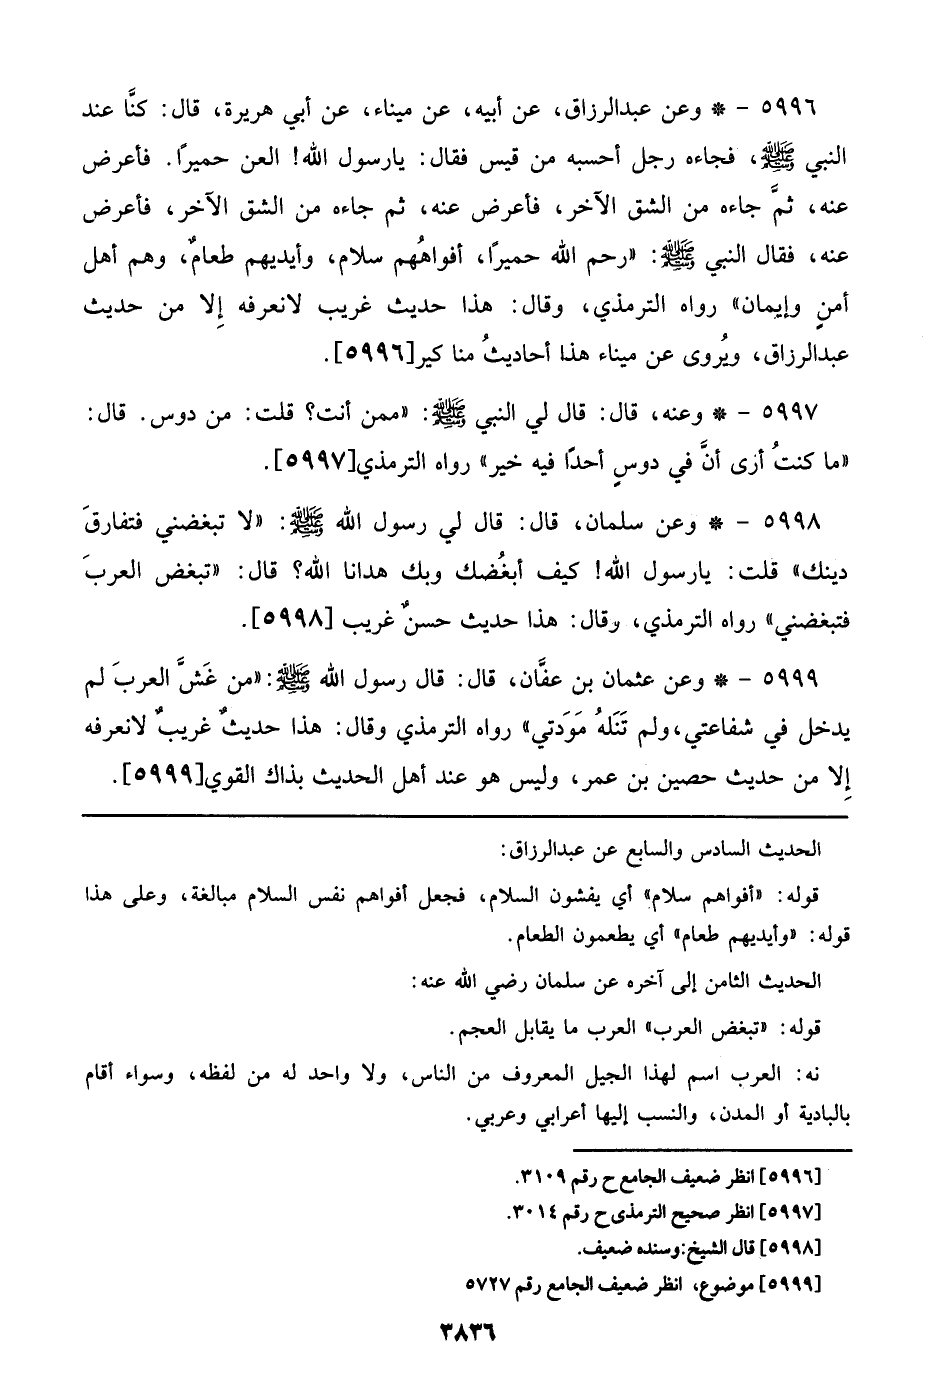 ٥٩٩٦ - * وعن عبدالرزاق، عن أبيه، عن ميناء، عن أبي هريرة، قال: كنَّا عند
النبي ﷺ، فجاءه رجل أحسبه من قيس فقال: يارسول الله! العن حميرًا. فأعرض
عنه، ثمَّ جاءه من الشق الآخر، فأعرض عنه، ثم جاءه من الشق الآخر، فأعرض
عنه، فقال النبي ﷺ: «رحم الله حميرًا، أفواهُهم سلام، وأيديهم طعامٌ، وهم أهل
أمنٍ وإيمان» رواه الترمذي، وقال: هذا حديث غريب لانعرفه إلا من حديث
عبدالرزاق، ويُروى عن ميناء هذا أحاديثُ منا كير[٥٩٩٦].
٥٩٩٧ - * وعنه، قال: قال لي النبي ﷺ: «ممن أنت؟ قلت: من دوس. قال:
«ما كنتُ أزى أنَّ في دوسٍ أحدًا فيه خير» رواه الترمذي[٥٩٩٧].
٥٩٩٨ - * وعن سلمان، قال: قال لي رسول الله ﷺ: «لا تبغضني فتفارقَ
دينك» قلت: يارسول الله! كيف أبغُضك وبك هدانا الله؟ قال: «تبغض العربَ
فتبغضني» رواه الترمذي، وقال: هذا حديث حسنٌ غريب [٥٩٩٨].
٥٩٩٩ - * وعن عثمان بن عفَّان، قال: قال رسول الله ﷺ:«من غَشَّ العربَ لم
يدخل في شفاعتي،ولم تَنَلهُ مَوَدتي» رواه الترمذي وقال: هذا حديثٌ غريبٌ لانعرفه
إلا من حديث حصين بن عمر، وليس هو عند أهل الحديث بذاك القوي[٥٩٩٩].
الحديث السادس والسابع عن عبدالرزاق:
قوله: «أفواهم سلام» أي يفشون السلام، فجعل أفواهم نفس السلام مبالغة، وعلى هذا
قوله: «وأيديهم طعام» أي يطعمون الطعام.
الحديث الثامن إلى آخره عن سلمان رضي الله عنه:
قوله: «تبغض العرب» العرب ما يقابل العجم.
نه: العرب اسم لهذا الجيل المعروف من الناس، ولا واحد له من لفظه، وسواء أقام
بالبادية أو المدن، والنسب إليها أعرابي وعربي.
[٥٩٩٦] انظر ضعيف الجامع ح رقم ٣١٠٩.
[٥٩٩٧] انظر صحيح الترمذى ح رقم ٣٠١٤.
[٥٩٩٨] قال الشيخ:وسنده ضعيف.
[٥٩٩٩] موضوع، انظر ضعيف الجامع رقم ٥٧٢٧
٣٨٣٦